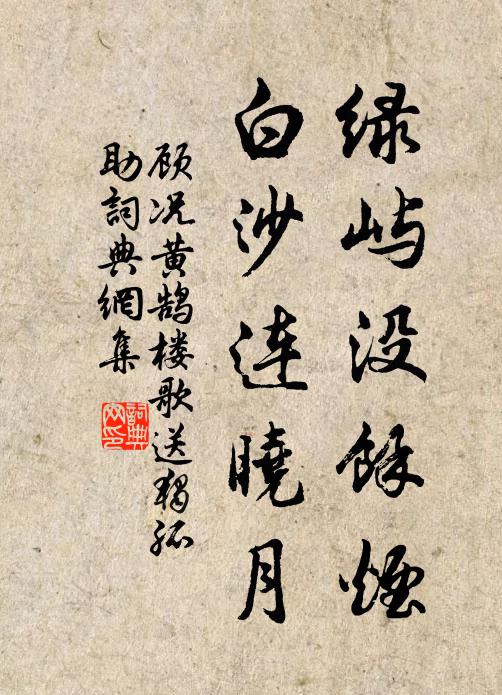 绿屿没馀烟
白沙连曉月
顾况黄鹄楼歌送独孤
助詞典網集
詞典
网印